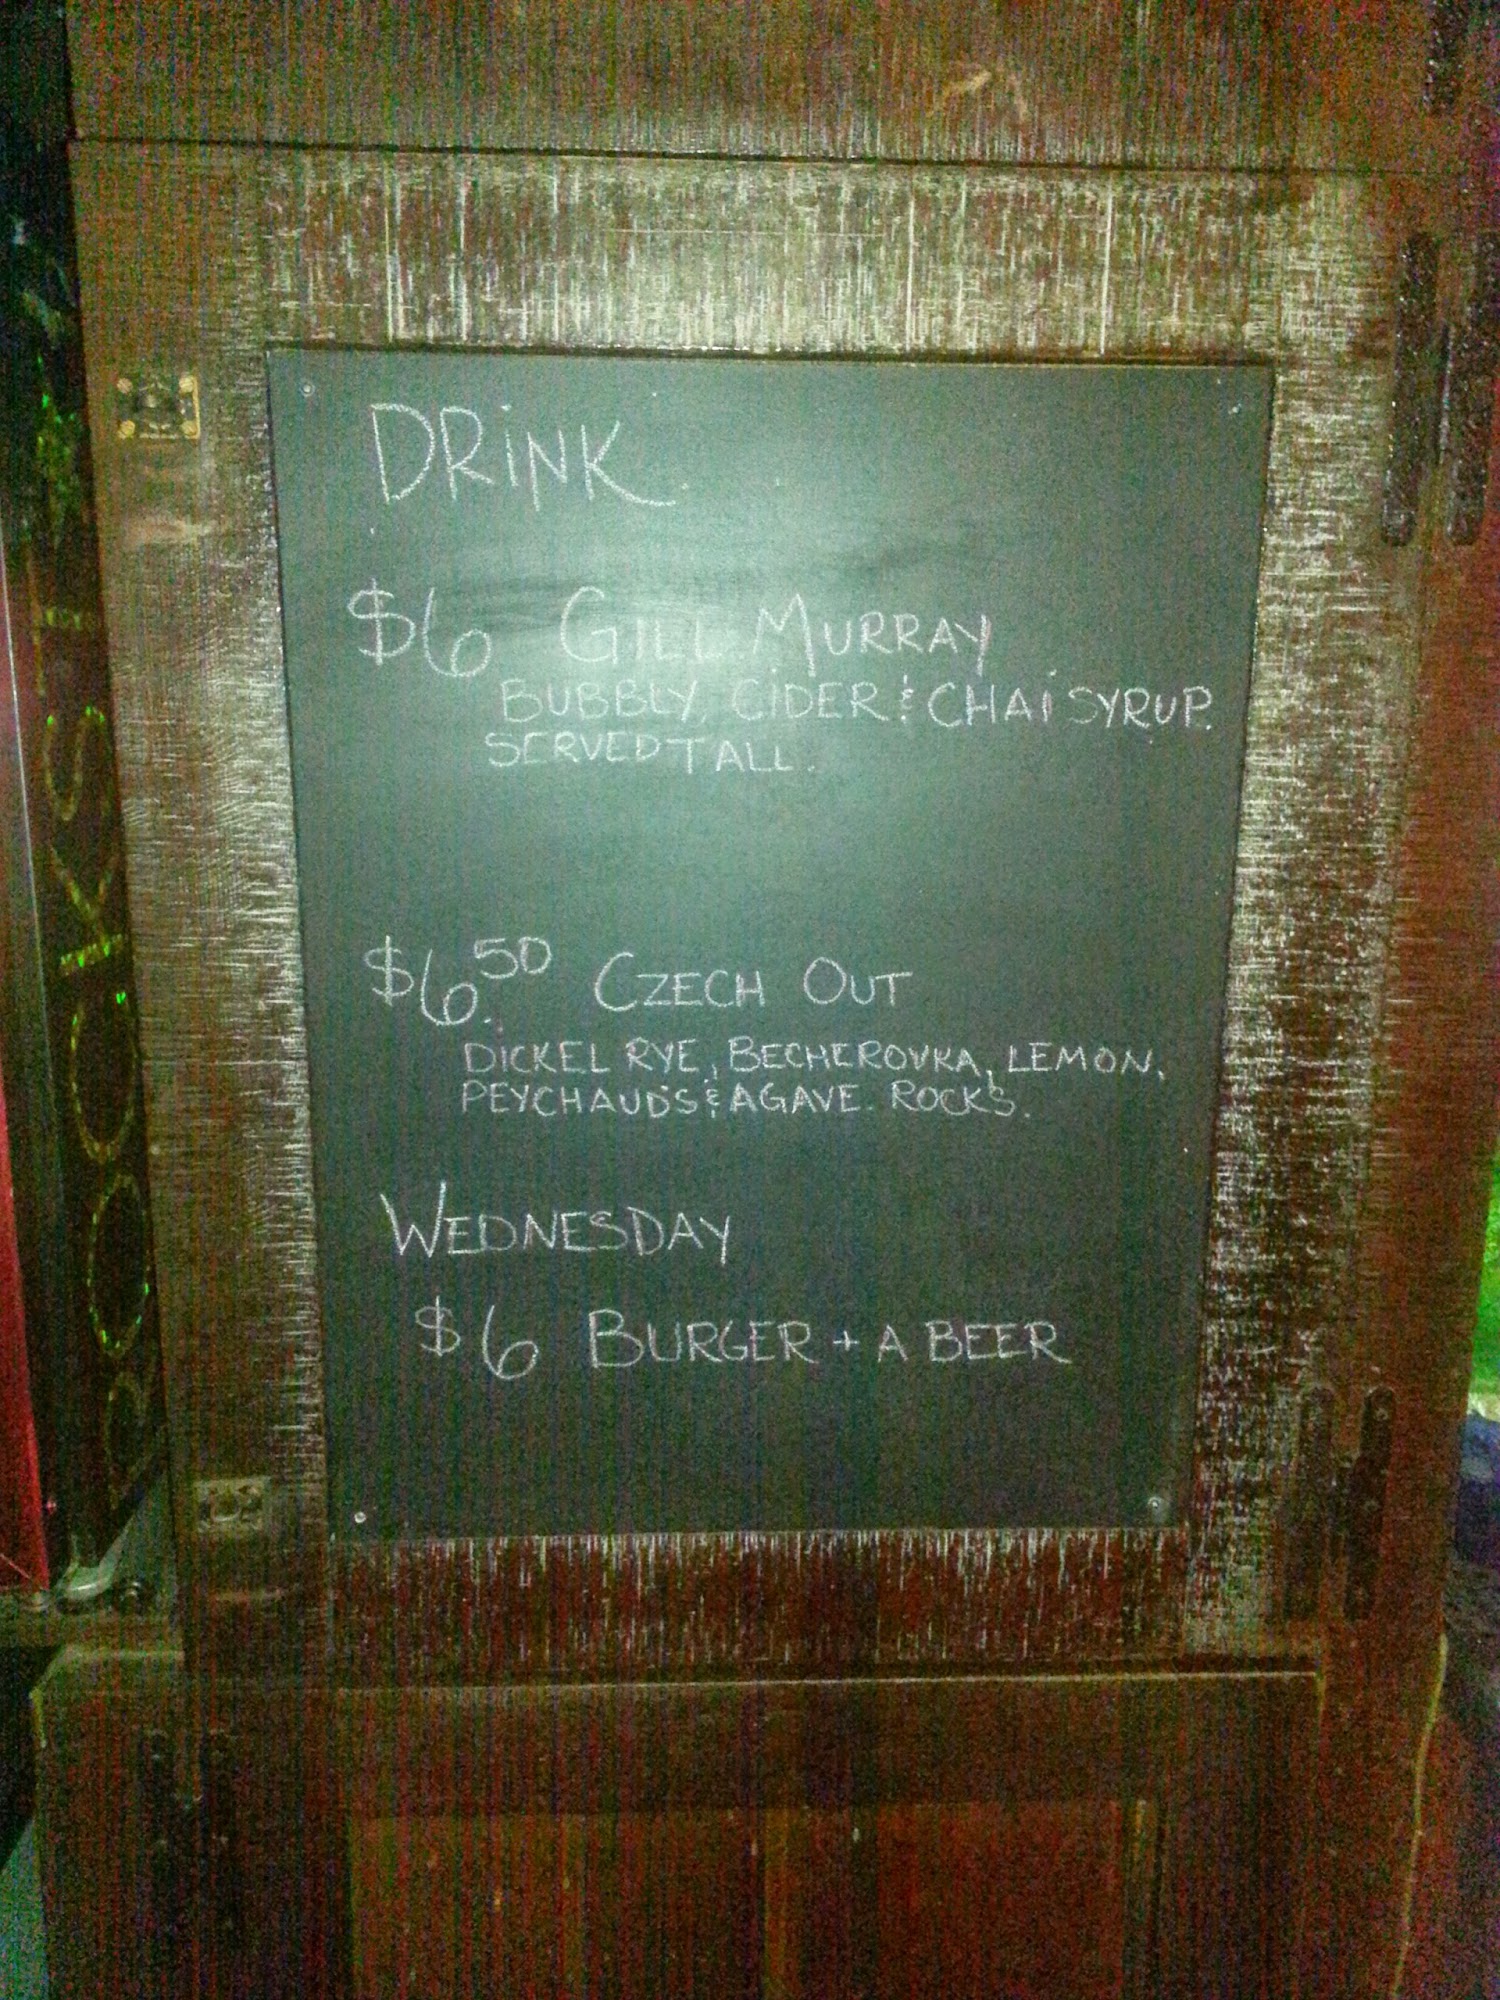 DRiNK
$6 GILL MURRAY
BUBBLY, CiDER & CHAi SYRUP.
SERVED TALL.
$6.50 CZECH OUT
DICKEL RYE, BECHEROVKA, LEMON,
PEYCHAUD'S & AGAVE. ROCKS.
WEDNESDAY
$6 BURGER + A BEER